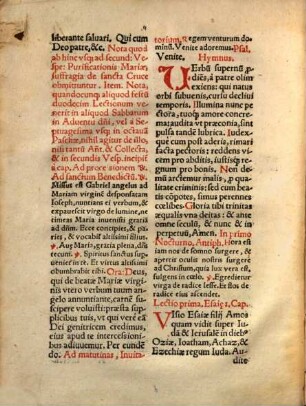 liberante saluari. Qui cum
Deo patre, &c. Nota quod
ab hinc vsq; ad secund: Ve-
sper: Purificationis Mariæ,
suffragia de sancta Cruce
obmittuntur. Item. Nota,
quandocunq; aliquod festū
duodecim Lectionum ve-
nerit in aliquod Sabbatum
in Aduentu dñi, vel a Se-
ptuagesima vsq; in octauā
Paschæ, nihil agitur de illo,
nisi tantū Añt. & Collecta,
& in secundis Vesp. incipit
a cap.
Ad sanctum Benedictū. Añ.
Missus est Gabriel angelus ad
Mariam virginē desponsatam
Ioseph, nuntians ei verbum, & ex-
pauescit virgo de lumine, ne
timeas Maria inuenisti gratiā
ad dñm. Ecce concipies, & pa-
ries, & vocabitur altissimi filius.
Aug Maria, gratia plena, dñs
tecum. Spiritus sanctus su-
perueniet in te. Et virtus al-
tissimi obumbrabit tibi. Ora: Deus,
qui de beatæ Mariæ virgi-
nis vtero verbum tuum ange-
lo annuntiante, carnē susci-
pere voluisti: præsta suppli-
cibus tuis, vt qui vere eam
Dei genitricem credimus,
eius apud te intercessioni-
bus adiuuemur. Per eundē
do. Ad matutinas, Inuita-
torium, Regem venturum domi-
num. Venite adoremus. Psal.
Venite. Hymnus.
VErbū supernū, p-
diēs, à patre olim
exiens: qui natus
orbi subuenis, cursu decliui
temporis. Illumina nunc pe-
ctora, tuoq; amore concre-
ma, audita vt præconia, sint
pulsa tandē lubrica. Iudex-
que cum post aderis, rimari
facta pectoris: reddens vi-
cem pro abditis, iustisq; re-
gnum pro bonis. Non de-
mum arctemur malis, p qua-
litate criminis; sed cum bea-
tis cōpotes, simus perennes
celibes. Gloria tibi trinitas
æqualis vna deitas: & ante
omne seculū, & nunc & in
perpetuū, Amen. In primo
Nocturno, Antiph. Hora est
iam nos de somno surgere, &
aperti sunt oculi nostri surgere
ad Christum, quia lux vera est,
fulgens in cœlo. Egredietur
virga de radice Iesse. Et flos de
radice eius ascendet.
Lectio prima, Esaię 1, Cap.
VIsio Esaiæ filij Amos
quam vidit super Iudā
& Ierusalē in diebꝰ
Oziæ, Ioatham, Achaz, &
Ezechiæ regum Iuda. Au-
dite